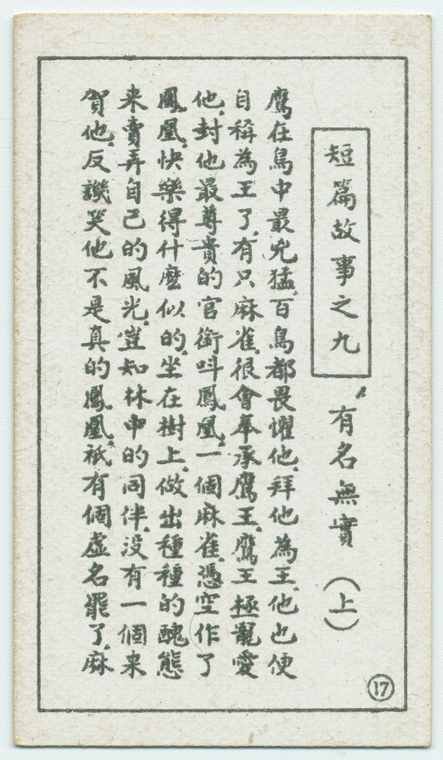 短篇故事之九
有名無實（上）
鷹在鳥中最兇猛，百鳥都畏懼他，拜他為王，他也便
自稱為王了，有只麻雀，很會奉承鷹王，鷹王極寵愛
他，封他最尊貴的官銜叫鳳凰，一個麻雀，憑空作了
鳳凰，快樂得什麼似的，坐在樹上，做出種種的醜態
來賣弄自己的風光，豈知林中的同伴，沒有一個來
賀他，反譏笑他不是真的鳳凰，祇有個虛名罷了，麻
17